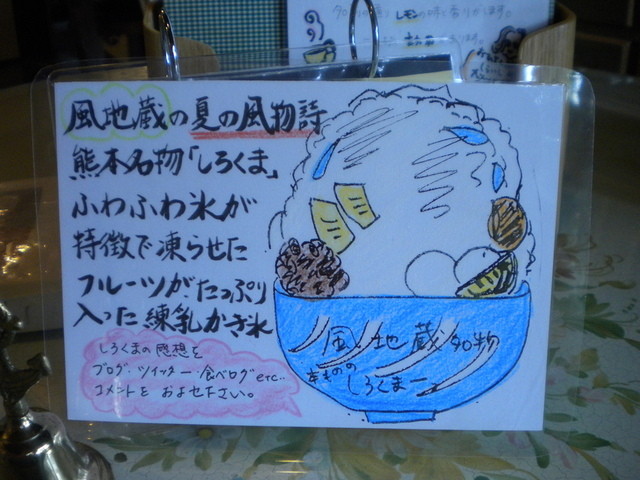 レモンの時と香りがします。
風地蔵の夏の風物詩
熊本名物「しろくま」
ふわふわ氷が
特徴で凍らせた
フルーツがたっぷり
入った練乳かき氷
しろくまの感想を
ブログ・ツイッター・食べログetc..
コメントをおよせ下さい。
風・地蔵名物
本ものの
しろくまー